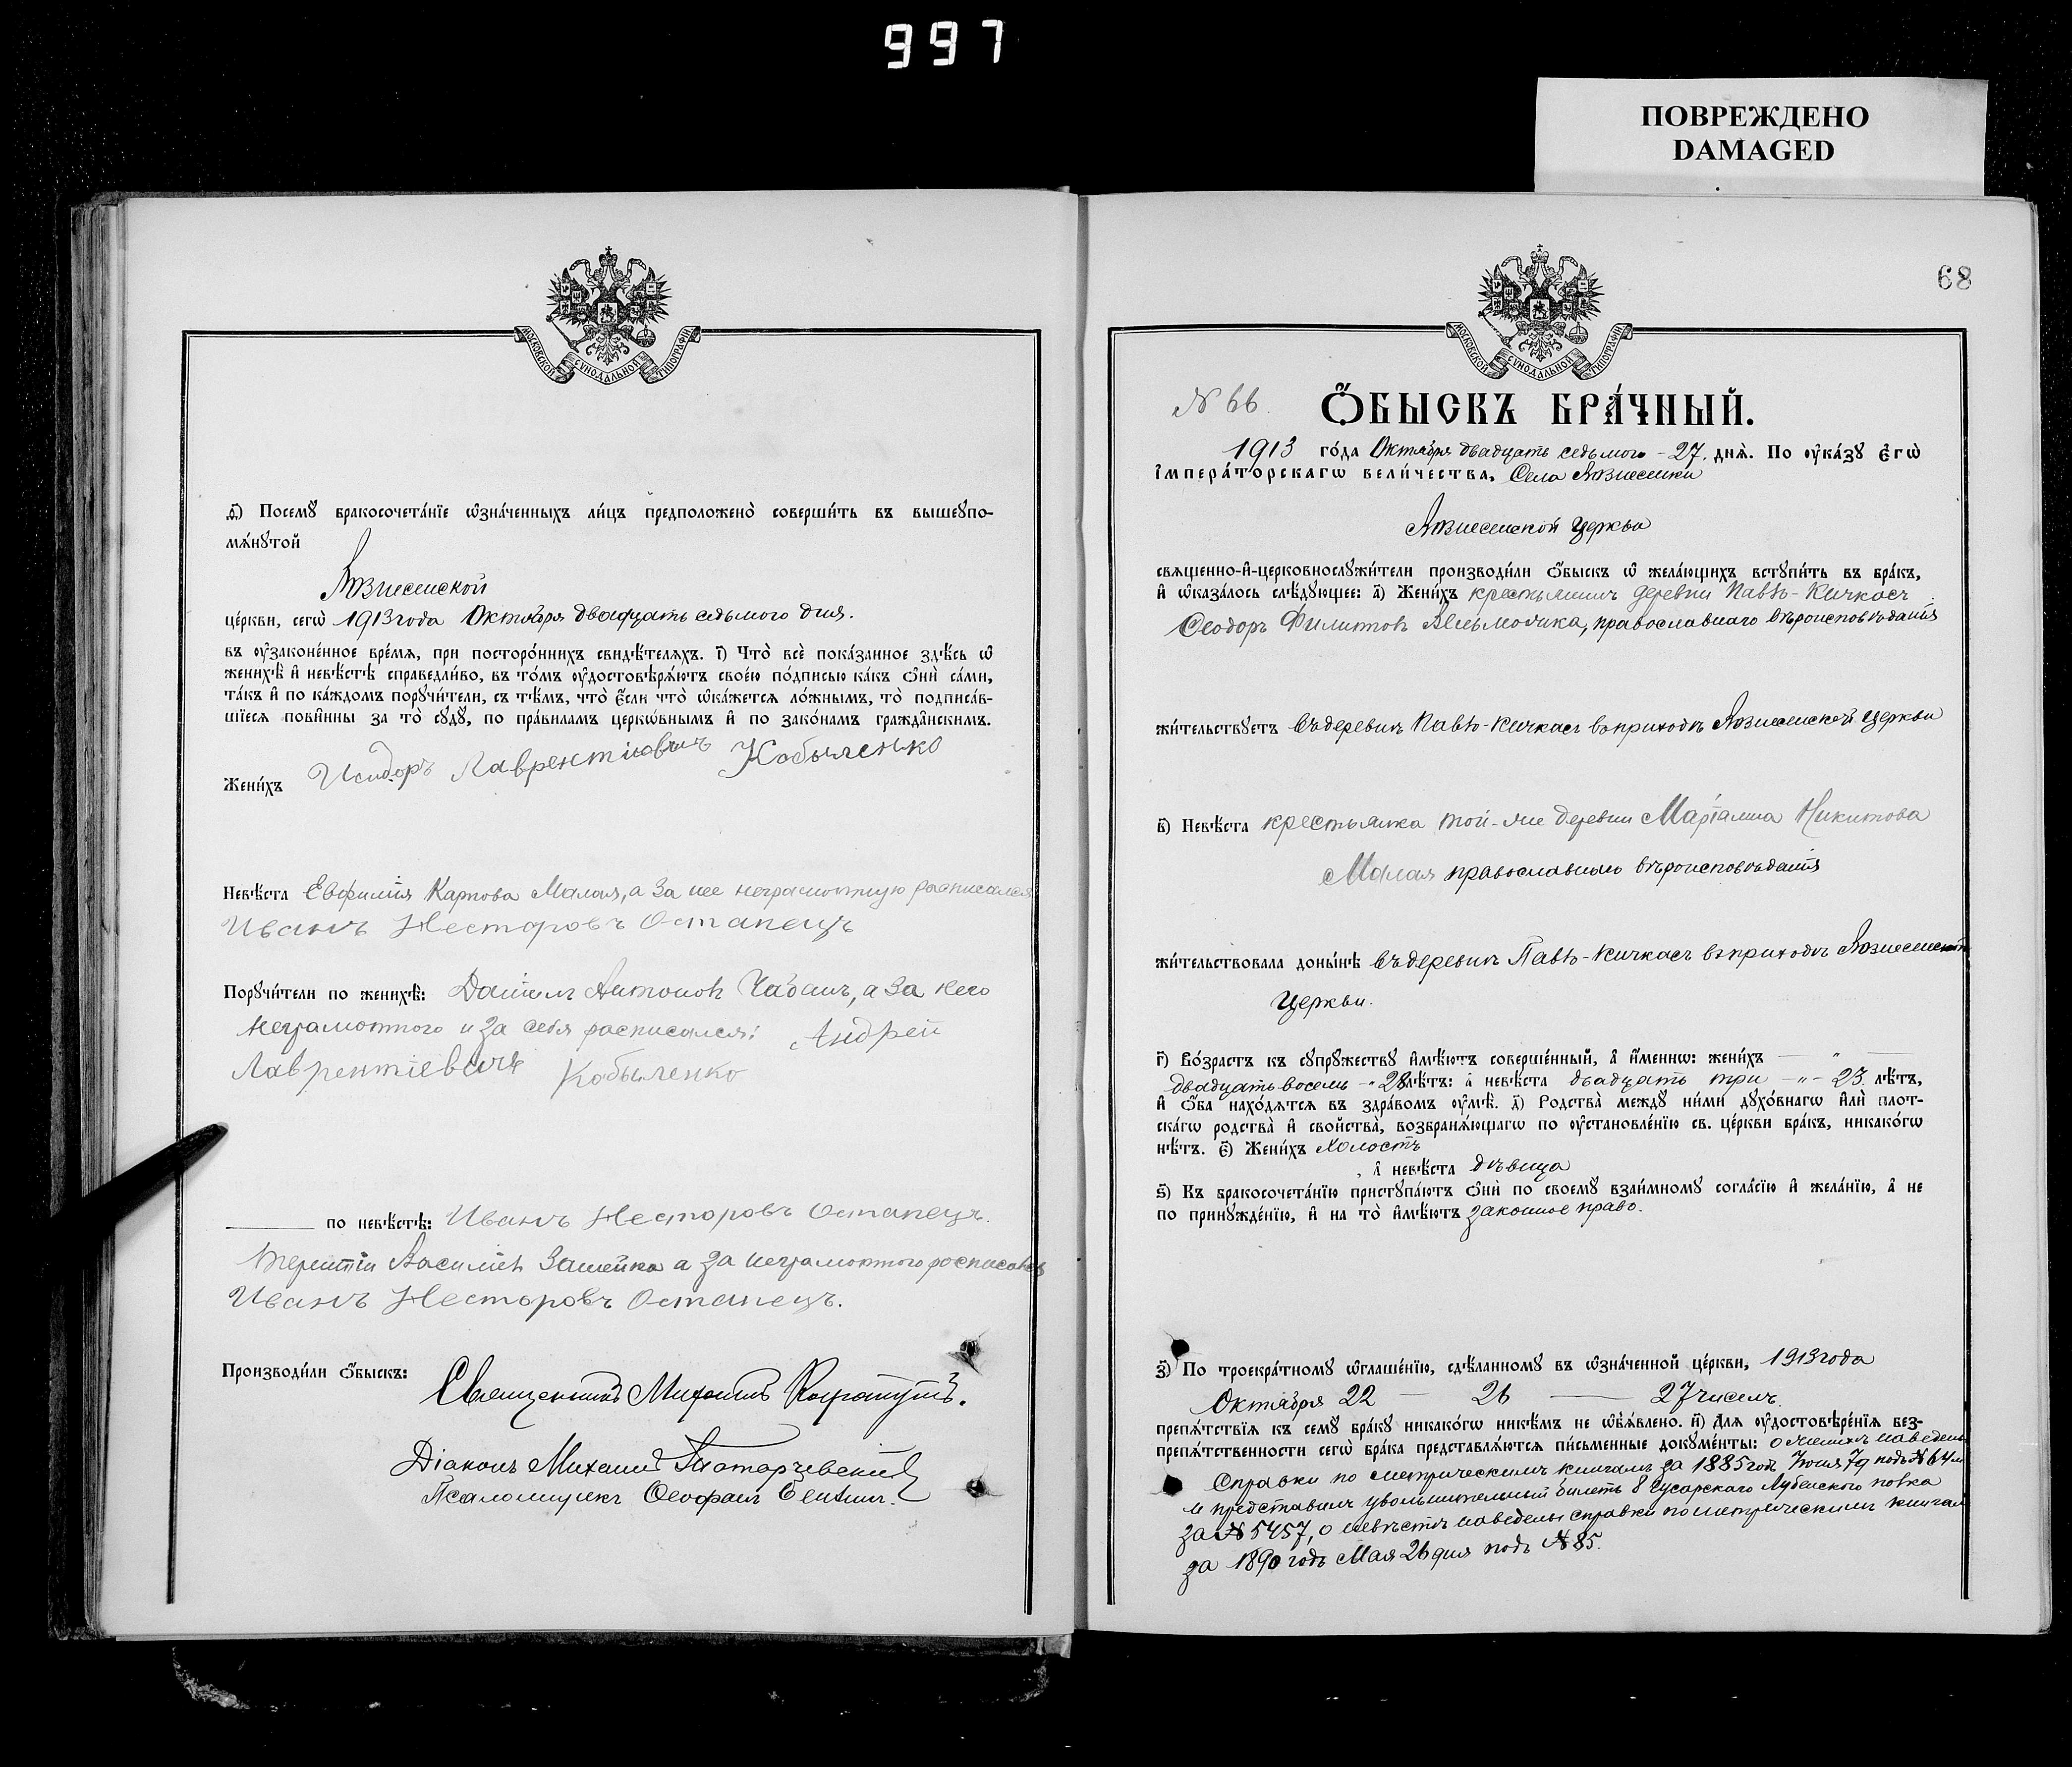 997
ПОВРЕЖДЕНО
DAMAGED
МОСКОВСКОЙ СѴНОДАЛЬНОЙ ТИПОГРАФІИ
ѳ҃) Посемꙋ̀ бракосочета́нїе ѡ҆зна́ченныхъ ли́цъ предположено̀ соверши́ть въ вышеꙋпо-
мѧ́нꙋтой
Вознесенской
це́ркви, сегѡ̀ 1913 года Октября двадцать седьмого дня.
въ ᲂу҆зако́ненное вре́мѧ, при посторо́ннихъ свидѣ́телѧхъ. і҃) Что̀ всѐ пока́занное здѣ́сь ѡ҆
женихѣ̀ и҆ невѣ́стѣ справедли́во, въ то́мъ ᲂу҆достовѣрѧ́ютъ свое́ю по́дписью ка́къ ѻ҆нѝ са́ми,
та́къ и҆ по ка́ждомъ порꙋчи́тели, съ тѣ́мъ, что̀ є҆́сли что̀ ѡ҆ка́жетсѧ ло́жнымъ, то̀ подписа́в-
шїесѧ пови́нны за то̀ сꙋдꙋ̀, по пра́виламъ церко́внымъ и҆ по зако́намъ гражда́нскимъ.
Жени́хъ Исидоръ Лаврентіовичъ Кобыленко
Невѣ́ста Евфимія Карпова Малая, а за нее неграмотную расписался
Иванъ Несторовъ Остапецъ
Порꙋчи́тели по женихѣ̀: Даніилъ Антоновъ Чабанъ, а за него
неграмотного и за себя расписался: Андрей
Лаврентіевичъ Кобыленко
по невѣ́стѣ: Иванъ Несторовъ Остапецъ.
Терентій Василіевъ а за неграмотного росписався
Иванъ Несторовъ Остапецъ.
Производи́ли ѻ҆́быскъ: Священникъ Михаилъ
Діаконъ Михаилъ Татарчевскій
Псаломщикъ Ѳеофанъ
68
МОСКОВСКОЙ СѴНОДАЛЬНОЙ ТИПОГРАФІИ
N 66. Ѻ҆́БЫСКЪ БРА́ЧНЫЙ.
1913 го́да Октября двадцать седьмого - 27. днѧ̀. По ᲂу҆ка́зꙋ Є҆гѡ̀
І҆мпера́торскагѡ вели́чества, Села Вознесенки
Вознесенской церкви
свѧще́нно-и҆-церковнослꙋжи́тели производи́ли ѻ҆́быскъ ѡ҆ жела́ющихъ встꙋпи́ть въ бра́къ,
и҆ ѡ҆каза́лось слѣ́дꙋющее: а҃) Жени́хъ крестьянинъ деревни Павло-Кичкасъ
Ѳеодоръ Филиповъ Вельможка, православнаго вѣроисповѣданія
жи́тельствꙋетъ въ деревнѣ Павло-Кичкасъ въ приходѣ Вознесенской церкви
в҃) Невѣ́ста крестьянка той-же деревни Маріамна Никитова
Малая православнаго вѣроисповѣданія
жи́тельствовала доны́нѣ въ деревнѣ Павло-Кичкасъ въ приходѣ Вознесенской
церкви.
г҃) Во́зрастъ къ сꙋпрꙋ́жествꙋ и҆мѣ́ютъ соверше́нный, а҆ и҆́меннѡ: жени́хъ — " —
двадцать восемь - " 28 лѣ́тъ: а҆ невѣ́ста двадцать три - " - 23. лѣ́тъ,
и҆ ѻ҆́ба нахо́дѧтсѧ въ здра́вомъ ᲂу҆мѣ̀. д҃) Родства̀ междꙋ̀ ни́ми дꙋхо́внагѡ и҆лѝ плот-
ска́гѡ родства̀ и҆ сво́йства̀, возбранѧ́ющагѡ по ᲂу҆становле́нїю св. це́ркви бра́къ, никако́гѡ
нѣ́тъ. є҃) Жени́хъ холостъ
, а҆ невѣ́ста дѣвица
ѕ҃) Къ бракосочета́нїю пристꙋпа́ютъ ѻ҆нѝ по своемꙋ̀ взаи́мномꙋ согла́сїю и҆ жела́нїю, а҆ не
по принꙋжде́нїю, и҆ на то̀ и҆мѣ́ютъ законное право.
з҃) По троекра́тномꙋ ѡ҆глаше́нїю, сдѣ́ланномꙋ въ ѡ҆зна́ченной це́ркви, 1913 года
Октября 22 — 26 — 27 чиселъ
препѧ́тствїѧ къ семꙋ̀ бра́кꙋ никако́гѡ никѣ́мъ не ѡ҆б̾ѧ́влено. и҃) Длѧ ᲂу҆достовѣре́нїѧ без-
препѧ́тственности сегѡ̀ бра́ка представлѧ́ютсѧ пи́сьменные докꙋме́нты: о женихѣ наведены
справки по метрическимъ книгамъ за 1885 годъ Іюня 7 д подъ N 64 м
и представилъ увольнительный билетъ 8 Гусарскаго Лубенского полка
за N 5457, о невѣстѣ наведены справки по метрическимъ книгамъ
за 1890 годъ Мая 26 дня подъ N 85.